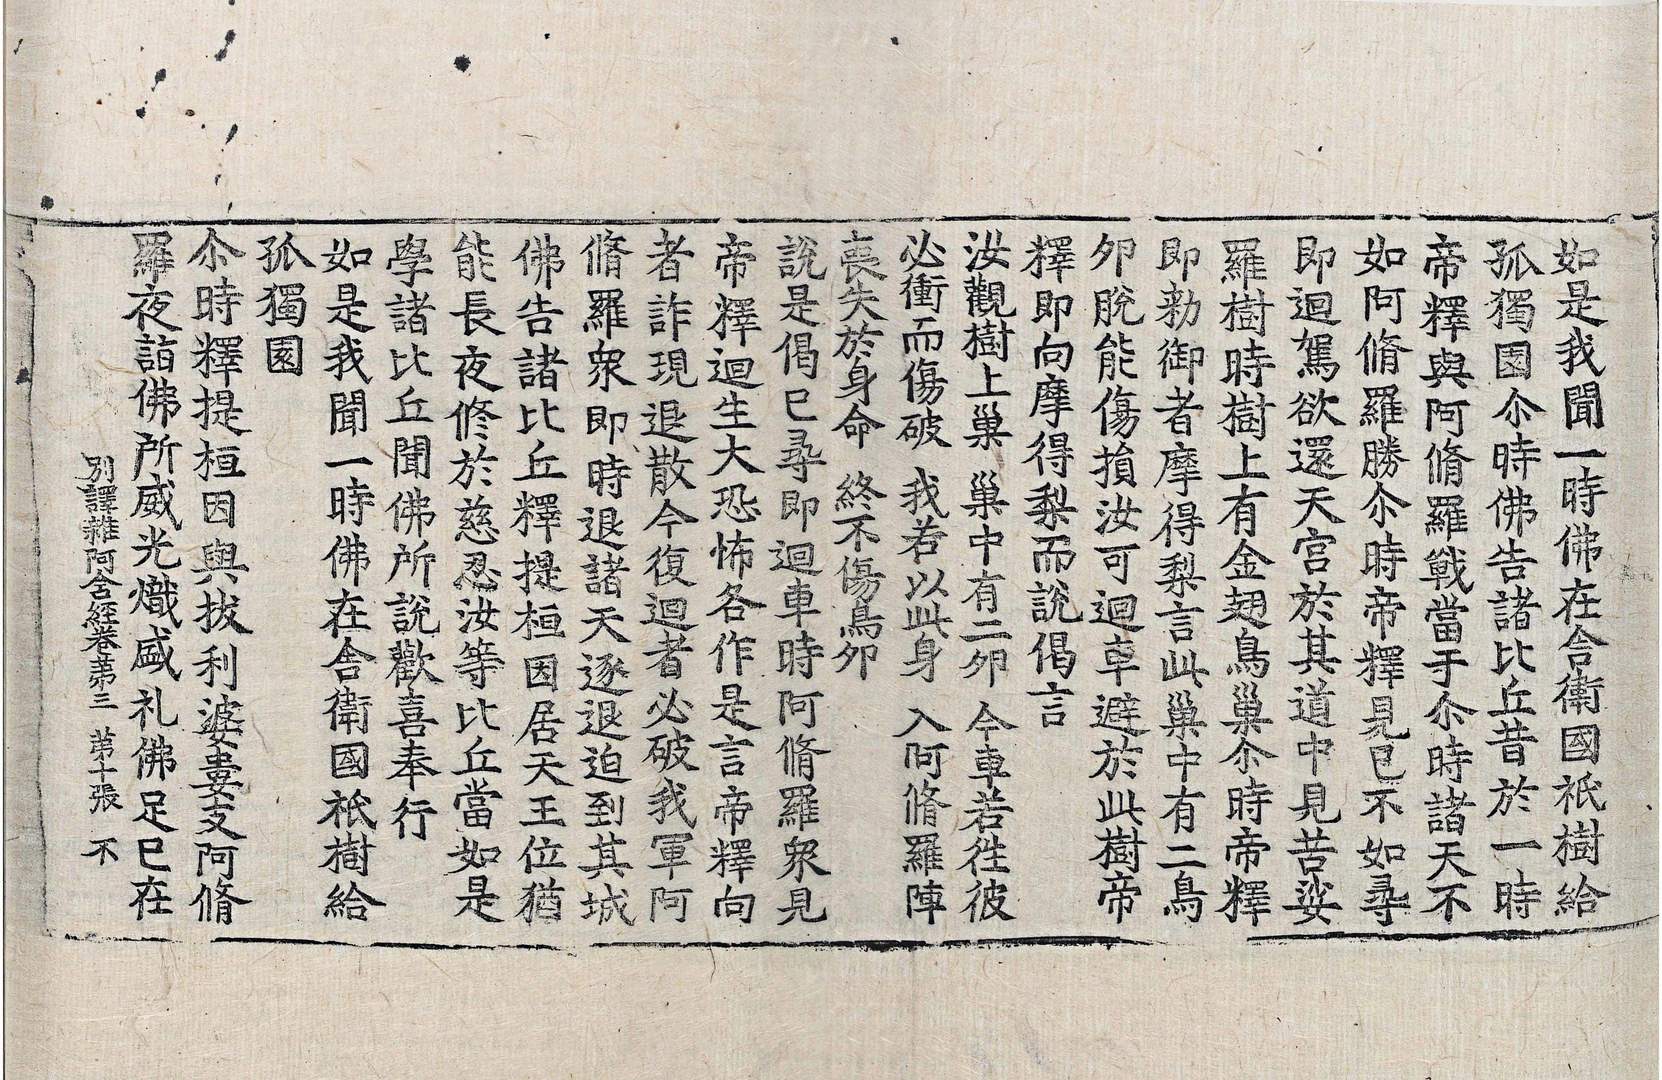 如是我聞一時佛在舎衛國祇樹給
孤獨園尒時佛告諸比丘昔於一時
帝釋與阿脩羅戰當于尒時諸天不
如阿脩羅勝尒時帝釋見已不如尋
即迴駕欲還天宮於其道中見苦娑
羅樹時樹上有金翅鳥巢尒時帝釋
即勑御者摩得梨言此巢中有二鳥
夘脫能傷損汝可迴車避於此樹帝
釋即向摩得梨而說偈言
汝觀樹上巢 巢中有二夘 今車若往彼
必衝而傷破 我若以此身 入阿脩羅陣
喪失於身命 終不傷鳥夘
說是偈已尋即迴車時阿脩羅衆見
帝釋迴生大恐怖各作是言帝釋向
者詐現退散今復迴者必破我軍阿
脩羅衆即時退諸天逐退迫到其城
佛告諸比丘釋提桓因居天王位猶
能長夜修於慈忍汝等比丘當如是
學諸比丘聞佛所說歡喜奉行
如是我聞一時佛在舎衛國祇樹給
孤獨園
尒時釋提桓因與拔利婆婁支阿脩
羅夜詣佛所威光熾盛礼佛足已在
別譯雜阿含經卷苐三 苐十張 不